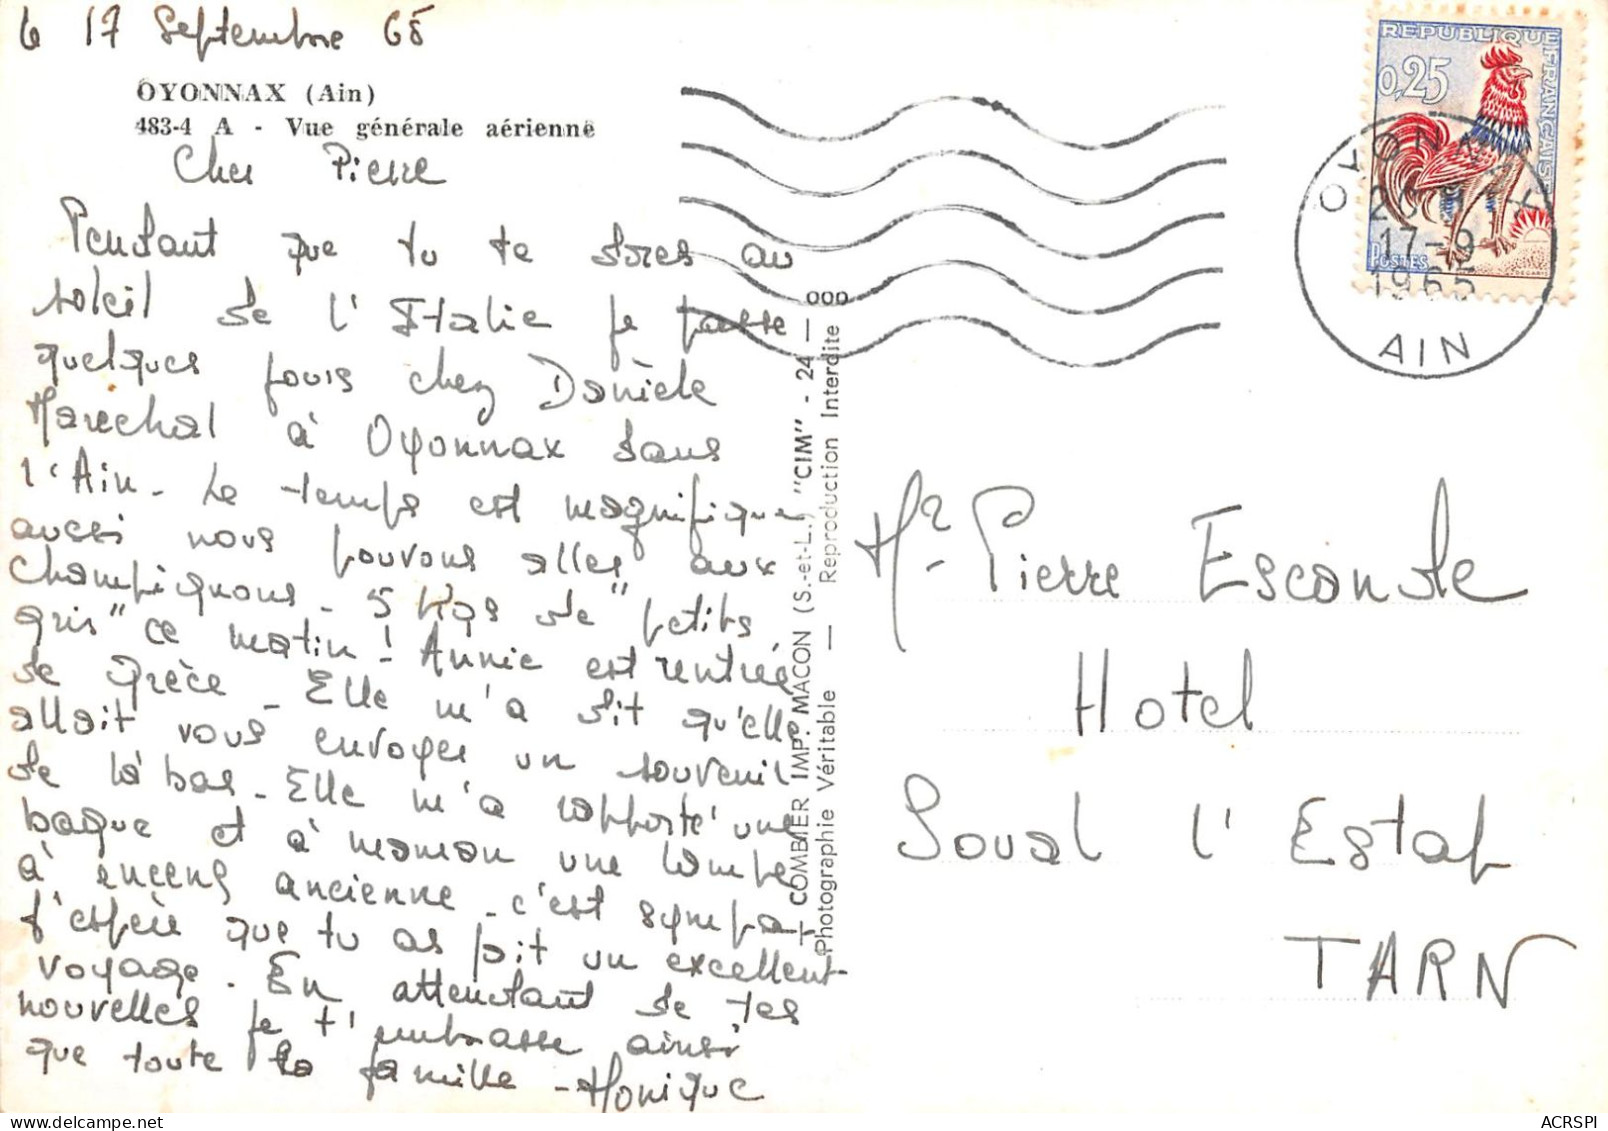 le 17 Septembre 65
OYONNAX (Ain)
483-4 A - Vue générale aérienne
Cher Pierre
Pendant que tu te dores au
soleil de l'Italie je passe
quelques jours chez Danièle
Marechal à Oyonnax dans
l'Ain - Le temps est magnifique
aussi nous pouvons aller aux
champignons - 5 kgs de "petits
gris" ce matin ! Annie est rentrée
de Grèce - Elle m'a dit qu'elle
allait vous envoyer un souvenir
de là bas - Elle m'a rapporté une
bague et à maman une lampe
à encens ancienne - c'est sympa -
J'espère que tu as fait un excellent
voyage - En attendant de tes
nouvelles je t'embrasse ainsi
que toute la famille - Monique
COMBIER IMP. MACON (S.-et-L.) "CIM" - 24 -
Photographie Véritable — Reproduction Interdite
REPUBLIQUE FRANÇAISE
0,25
POSTES
DECARIS
OYONNAX
17-9
1965
AIN
Mr Pierre Escande
Hotel
Soual l'Estap
TARN
ACRSPI